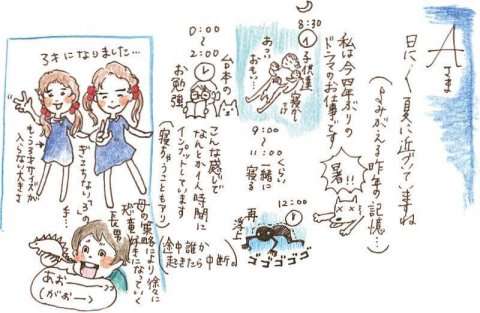 Aさま
日に日に夏に近づいて来ますね
(よみがえる昨年の記憶…)
暑!!
私は今四年ぶりの
ドラマのお仕事です
8:30
子供達
寝かし
つけ
あっ…
おもい…
9:00
〜
11:00くらい
一緒に
寝る
12:00
再
浮上
ゴゴゴゴゴ
0:00
〜
2:00
台本の
お勉強
こんな感じで
なんとか1人時間に
インプットしています
(寝ちゃうこともアリ)
(途中誰か
起きたら中断。)
3才になりました…
もう3才サイズが
入らない大きさ
ぎこちない3の
手…
母の策略により徐々に
恐竜好きになっていく
長男
あお〜
(がお〜)